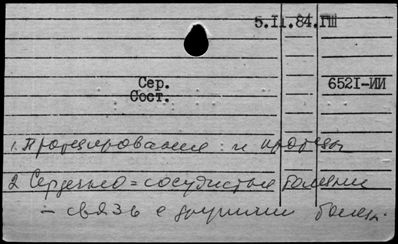 5.II.84.ГШ
Сер.
652I-ИИ
Сост.
1. Протезирование: и протезы
2. Сердечно=сосудистые болезни
— связь с другими болезн.